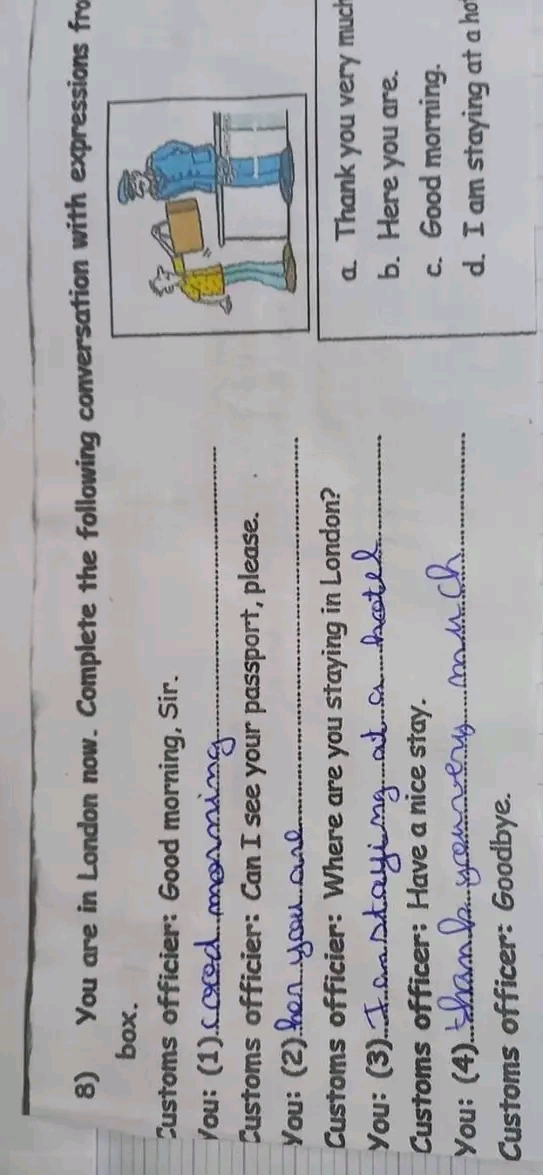 8) You are in London now. Complete the following conversation with expressions fro
box.
Customs officier: Good morning, Sir.
You: (1) Good morning
Customs officier: Can I see your passport, please.
You: (2) her you are
Customs officier: Where are you staying in London?
You: (3) I am staying at a hotel
Customs officer: Have a nice stay.
You: (4) thank you very much
Customs officer: Goodbye.
a. Thank you very much
b. Here you are.
c. Good morning.
d. I am staying at a ho